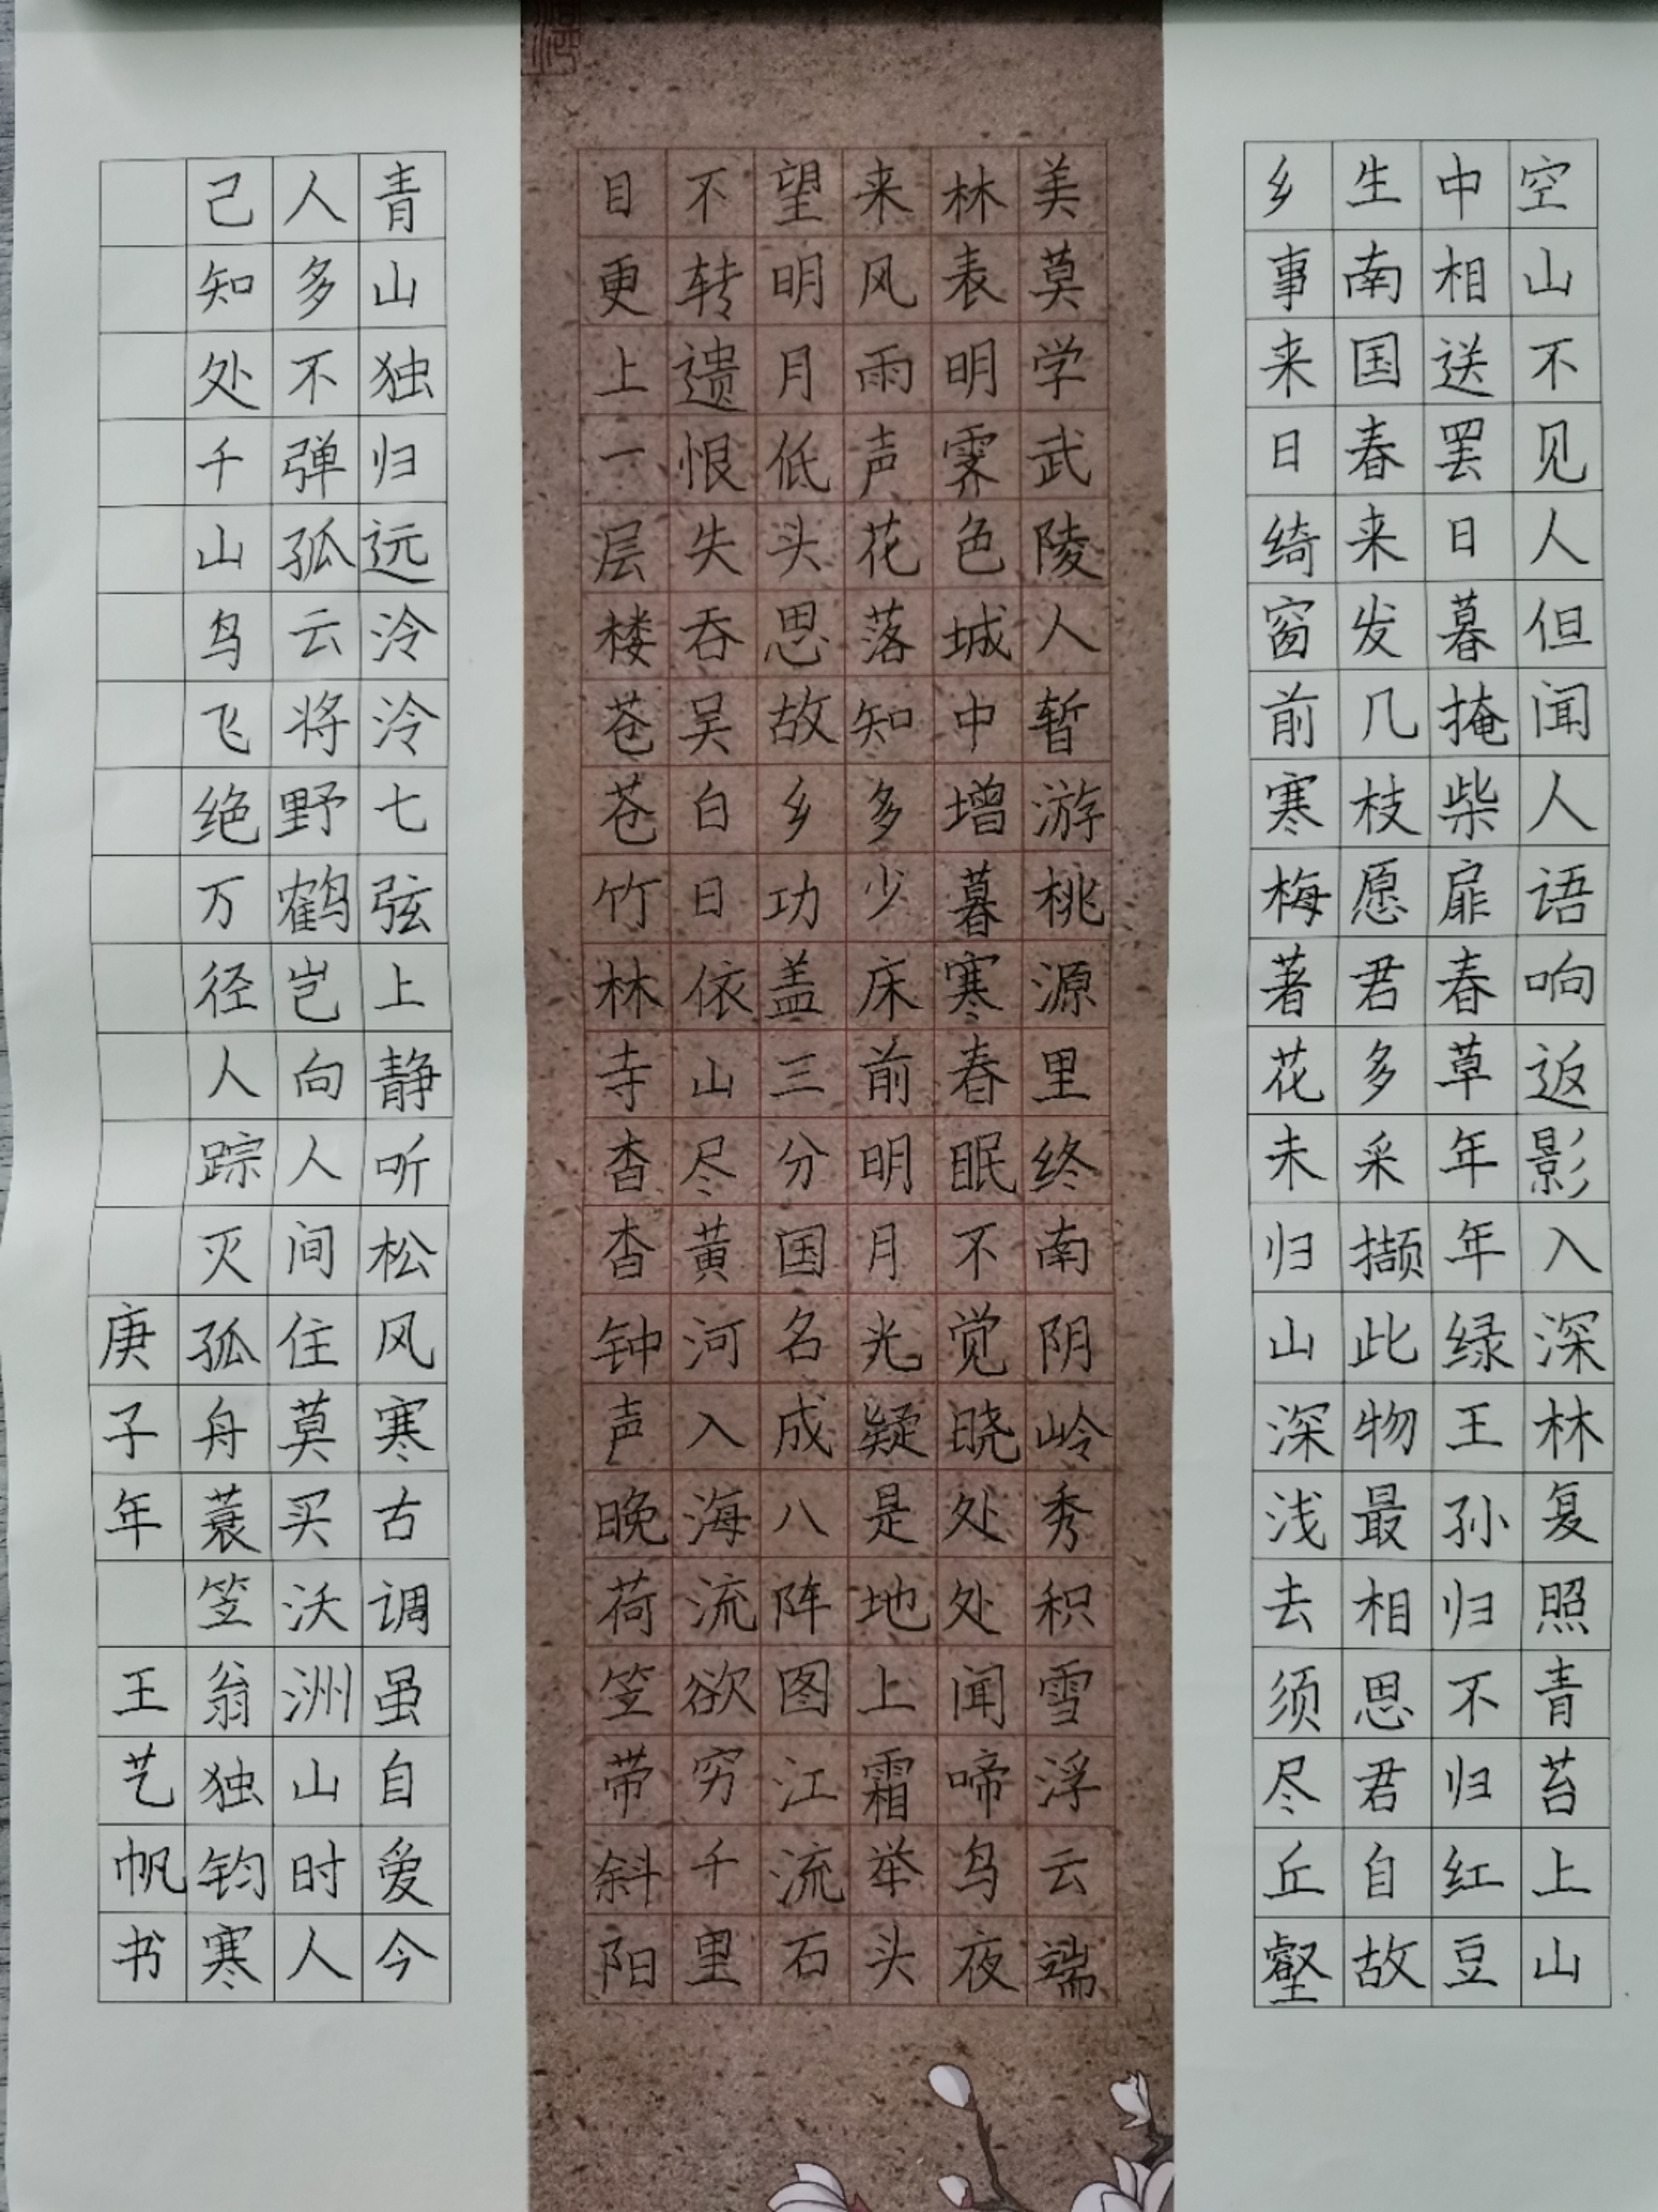 空山不见人但闻人语响返影入深林复照青苔上山
中相送罢日暮掩柴扉春草年年绿王孙归不归红豆
生南国春来发几枝愿君多采撷此物最相思君自故
乡事来日绮窗前寒梅著花未归山深浅去须尽丘壑
美莫学武陵人暂游桃源里终南阴岭秀积雪浮云端
林表明霁色城中增暮寒春眠不觉晓处处闻啼鸟夜
来风雨声花落知多少床前明月光疑是地上霜举头
望明月低头思故乡功盖三分国名成八阵图江流石
不转遗恨失吞吴白日依山尽黄河入海流欲穷千里
目更上一层楼苍苍竹林寺杳杳钟声晚荷笠带斜阳
青山独归远泠泠七弦上静听松风寒古调虽自爱今
人多不弹孤云将野鹤岂向人间住莫买沃洲山时人
己知处千山鸟飞绝万径人踪灭孤舟蓑笠翁独钧寒
庚子年 王艺帆书